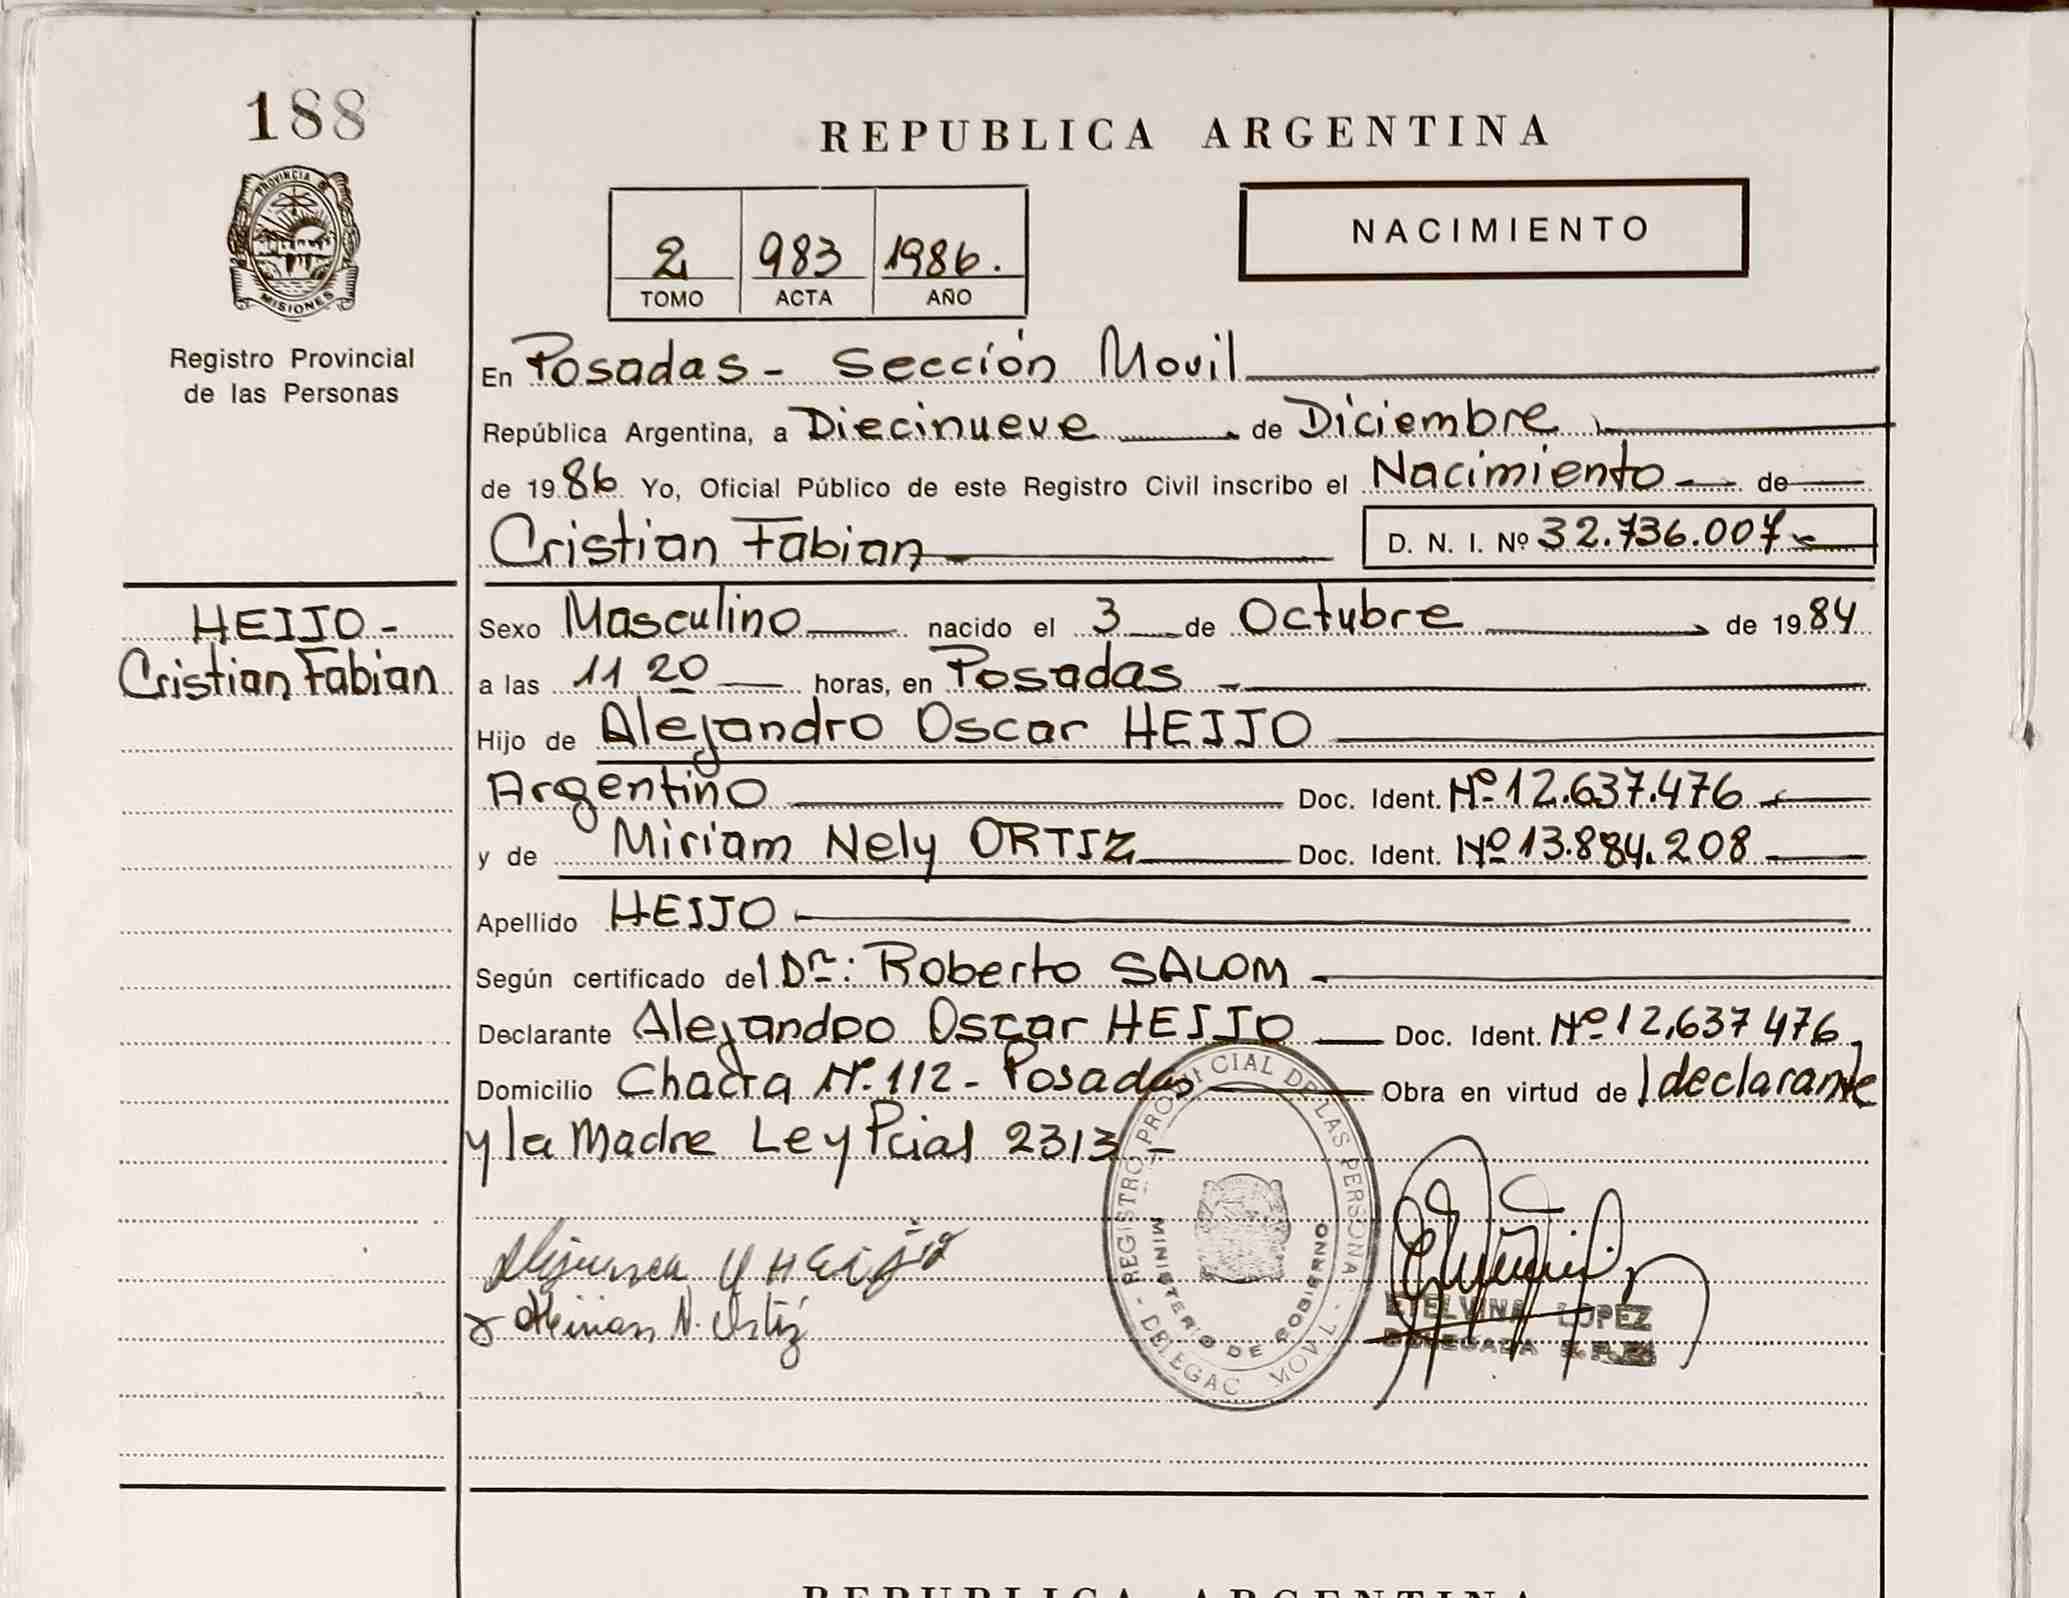 188
PROVINCIA DE
MISIONES
Registro Provincial
de las Personas
REPUBLICA ARGENTINA
2 983 1986.
TOMO ACTA AÑO
NACIMIENTO
En Posadas - Sección Movil
República Argentina, a Diecinueve de Diciembre
de 1986 Yo, Oficial Público de este Registro Civil inscribo el Nacimiento de
Cristian Fabian D. N. I. Nº 32.736.007
HEIJO -
Cristian Fabian
Sexo Masculino nacido el 3 de Octubre de 1984
a las 11 20 horas, en Posadas
Hijo de Alejandro Oscar HEIJO
Argentino Doc. Ident. Nº 12.637.476
y de Miriam Nely ORTIZ Doc. Ident. Nº 13.884.208
Apellido HEIJO
Según certificado del Dr: Roberto SALOM
Declarante Alejandoo Oscar HEIJO Doc. Ident. Nº 12.637 476
Domicilio Chacra Nº 112 - Posadas Obra en virtud de l declarante
y la Madre Ley Pcial 2313 -
Miriam N. Ortiz
REGISTRO PROVINCIAL DE LAS PERSONAS - DELEGAC MOVIL -
MINISTERIO DE GOBIERNO
ETELVINA LOPEZ
DELEGADA
REPUBLICA ARGENTINA